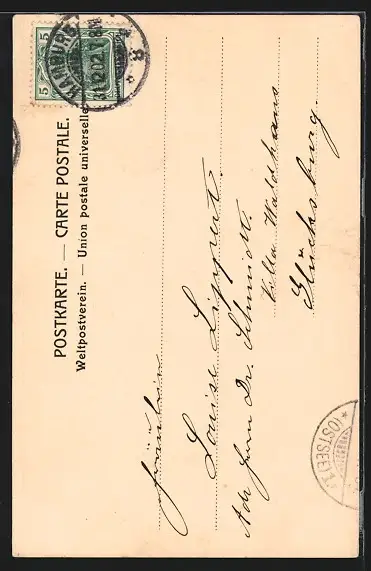 POSTKARTE. — CARTE POSTALE.
Weltpostverein. — Union postale universelle
5 5
HAMBURG
31.12.02.
* 8 *
Fräulein
Louise Lippert.
Adr Herrn Dr. Schmidt.
Villa Waldhaus
Glücksburg.
(OSTSEE) *